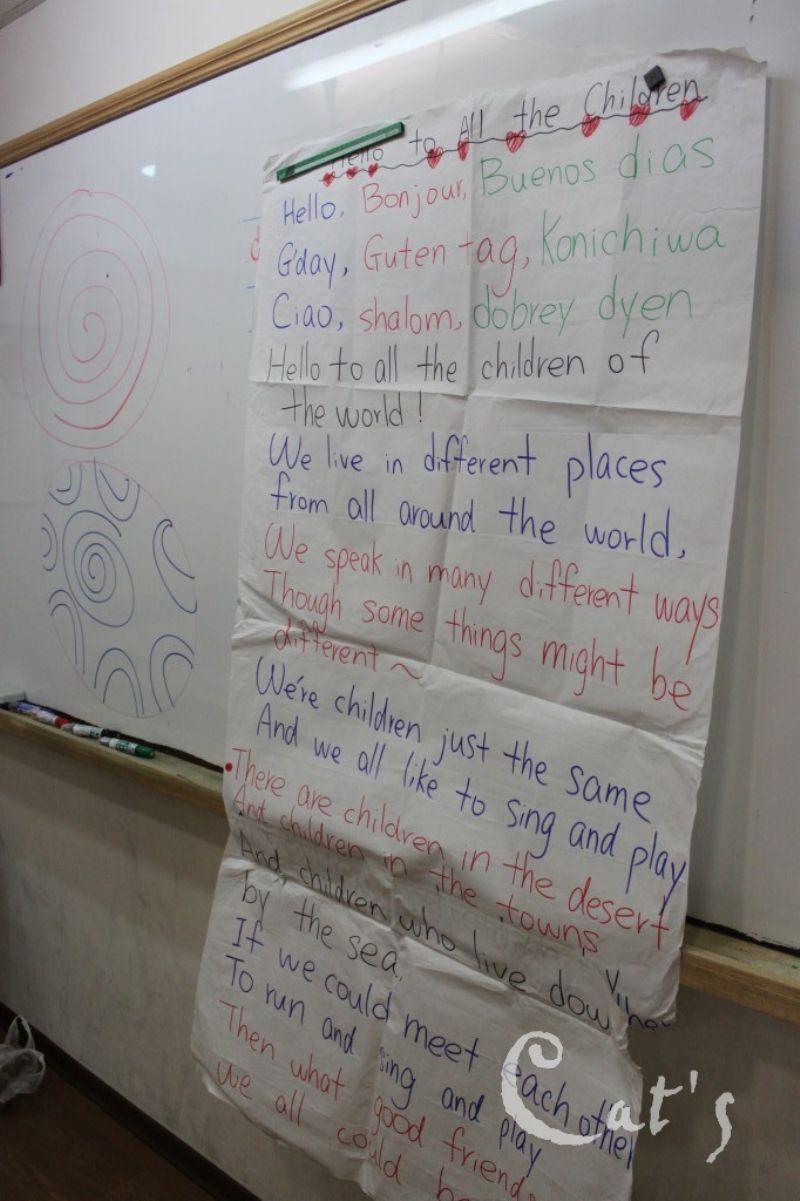 Hello to All the Children
Hello, Bonjour, Buenos dias
G'day, Guten tag, Konichiwa
Ciao, shalom, dobrey dyen
Hello to all the children of
the world!
We live in different places
from all around the world,
We speak in many different ways
Though some things might be
different~
We're children just the same
And we all like to sing and play
There are children in the desert
And children in the towns
And children who live down
by the sea,
If we could meet each other
To run and sing and play
Then what good friends
we all could be
Cat's